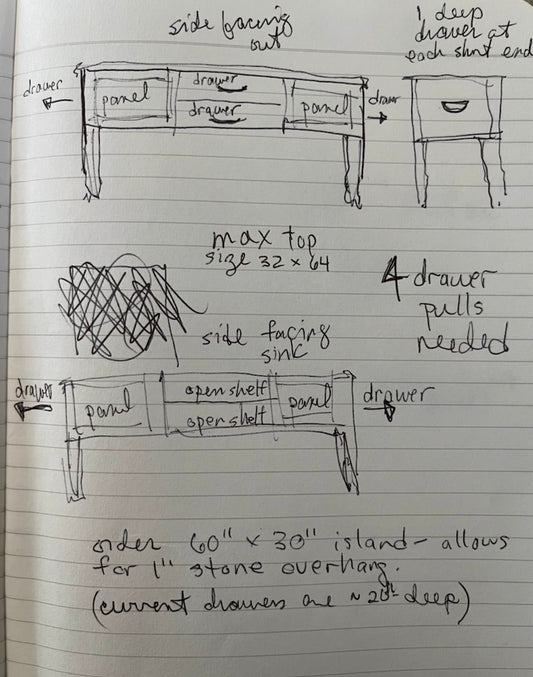 side facing
out
1 deep
drawer at
each short end
drawer
panel
drawer
drawer
panel
drawer
max top
size 32 x 64
4 drawer
pulls
needed
side facing
sink
drawer
panel
open shelf
open shelf
panel
drawer
order 60" x 30" island - allows
for 1" stone overhang.
(current drawers are ~ 20" deep)